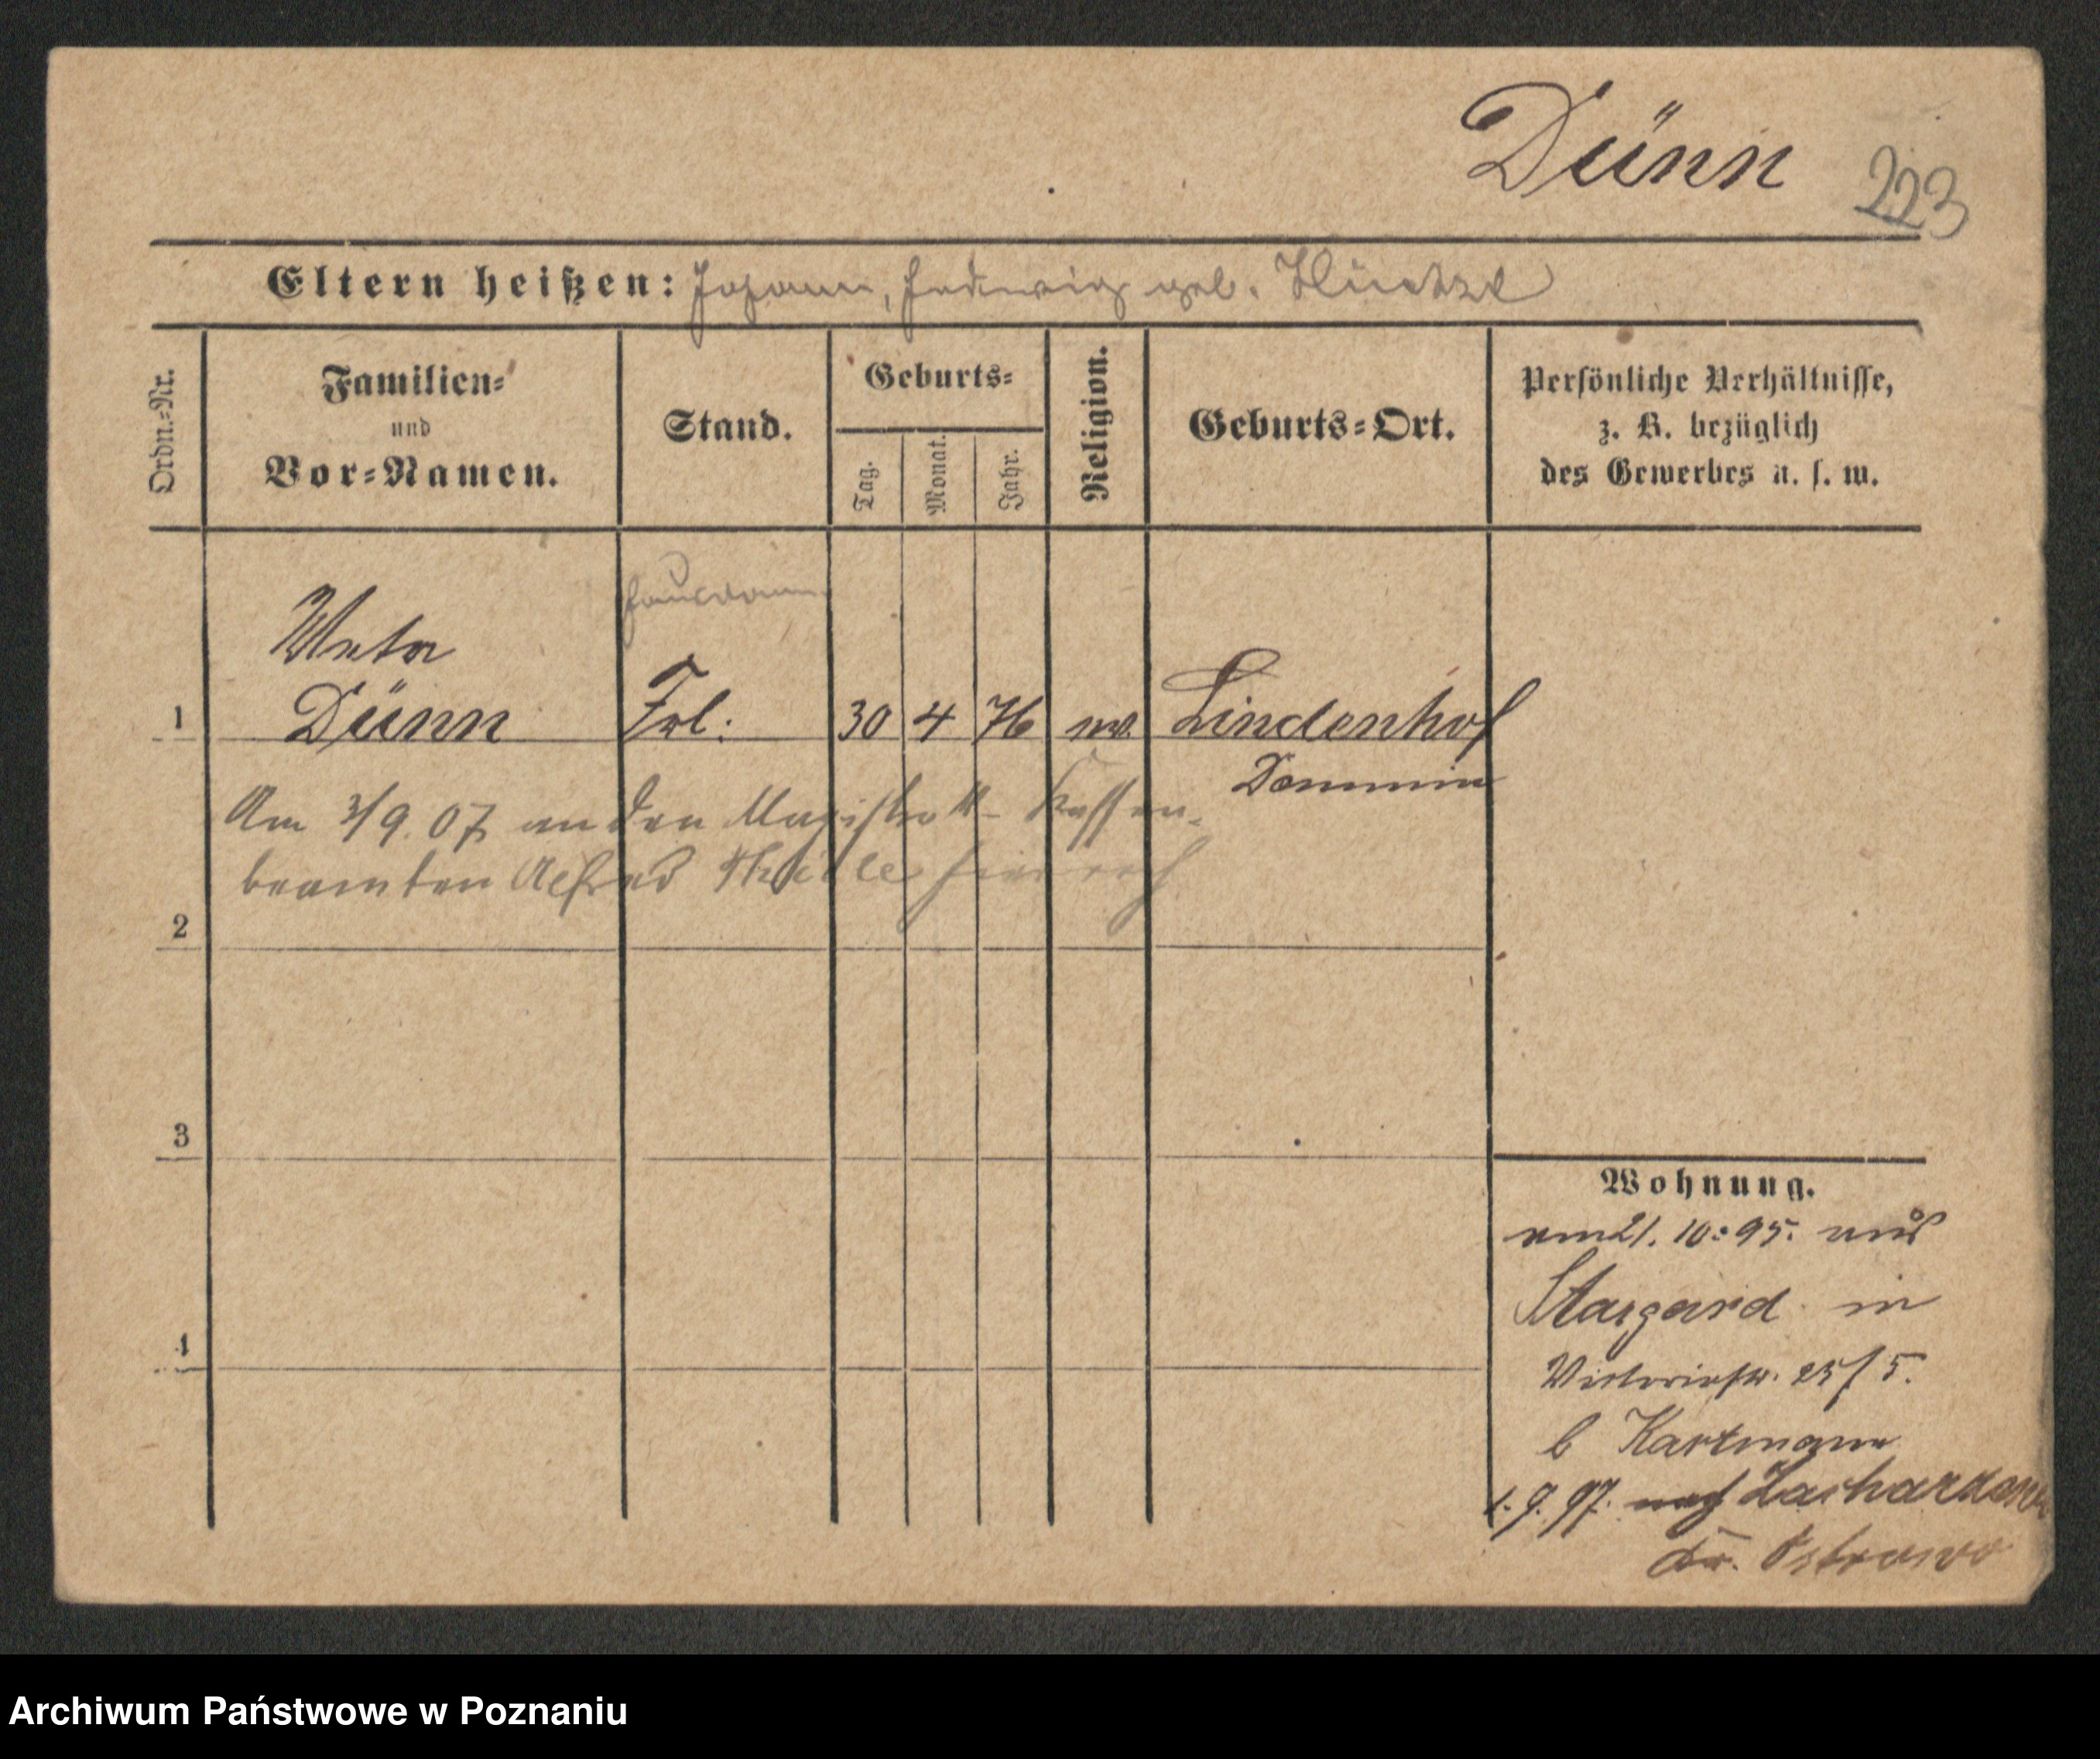 Dünn
223
Eltern heißen: Johann, Hedwig geb.
Ordn.-Nr.
Familien-
und
Vor-Namen.
Stand.
Geburts-
Tag.
Monat.
Jahr.
Religion.
Geburts-Ort.
Persönliche Verhältnisse,
z. B. bezüglich
des Gewerbes u. s. w.
Meta
1 Dünn Frl. 30 4 76 ev. Lindenhof
Demmin
Am 3/9. 07 an den Magistrats-Kassen-
beamten Alfred Thiele
2
3
4
Wohnung.
am 21. 10. 95. aus
Stargard in
Victoriastr. 25/5.
b Hartmann
1. 9. 97. nach
Kr. Ostrowo
Archiwum Państwowe w Poznaniu